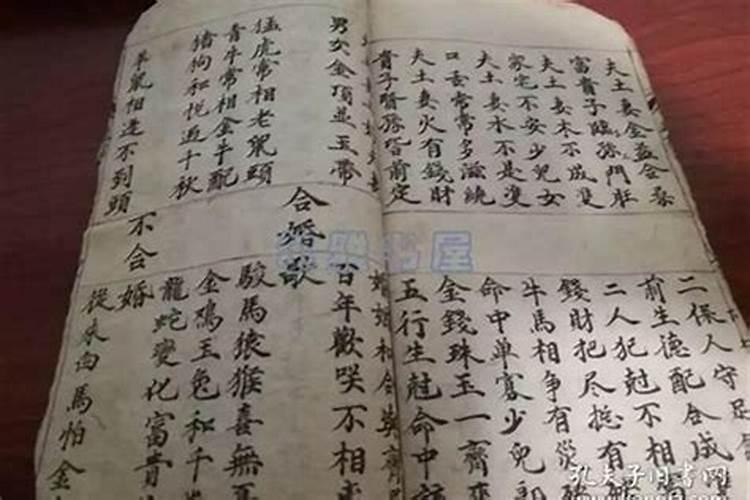 夫土妻金益合
富貴子臨孫門莊
夫土妻木不成雙
家宅不安少兒女
夫土妻水不是雙
口舌常常多滋繞
夫土妻火有錢財
貴子賢孫皆前定
二保人守足
前生德配合成
二人犯尅不相
錢財把盡挺有
牛馬相爭有災
命中單寡少兒郎
金錢珠玉一齊來
五行生尅命中
婚姻和合莫
男女金頂並玉帶
猛虎常相老鼠頭
青牛常相金牛配
豬狗和悅過千秋
羊鼠相逢不到頭
合婚歌
百年歡咲不相
駿馬猿猴喜無
金鳮玉兔和千
龍蛇變化富貴
不合婚
從來白馬怕金
孔夫子旧书网